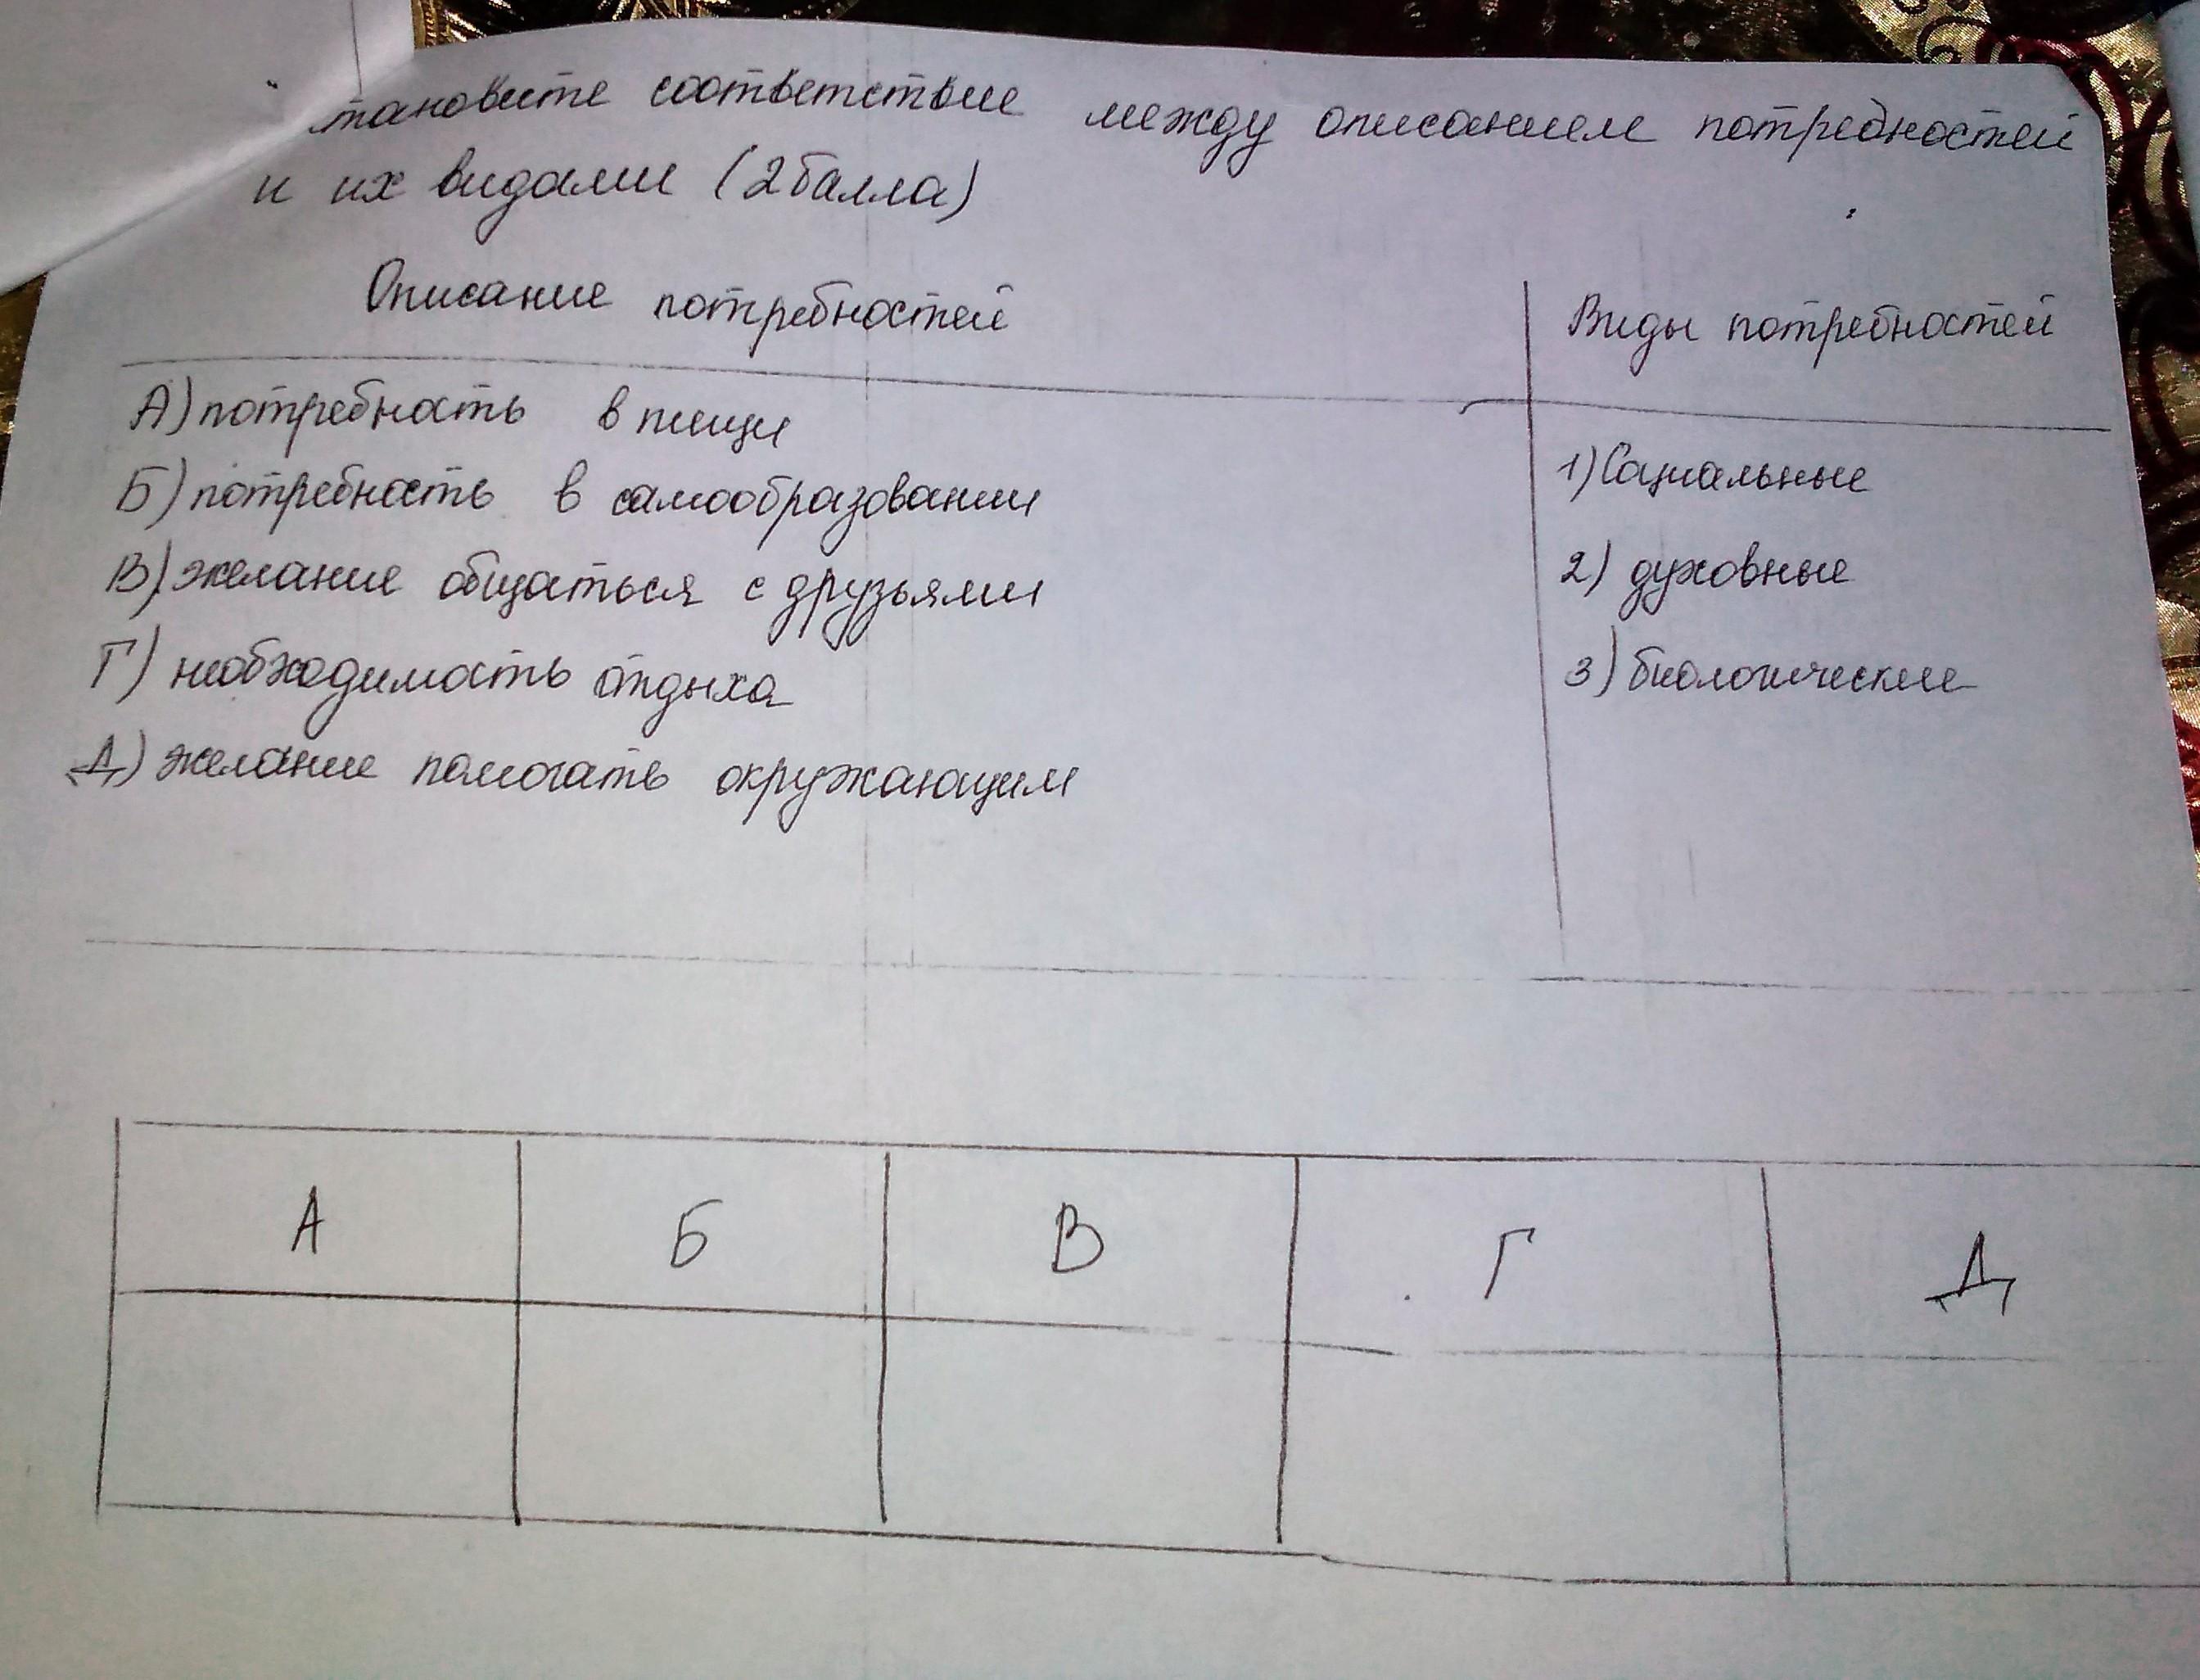 становите соответствие между описанием потребностей
и их видами (2 балла)
Описание потребностей
Виды потребностей
А) потребность в пищи
Б) потребность в самообразовании
В) желание общаться с друзьями
Г) необходимость отдыха
Д) желание помогать окружающим
1) Социальные
2) духовные
3) биологические
А Б В Г Д